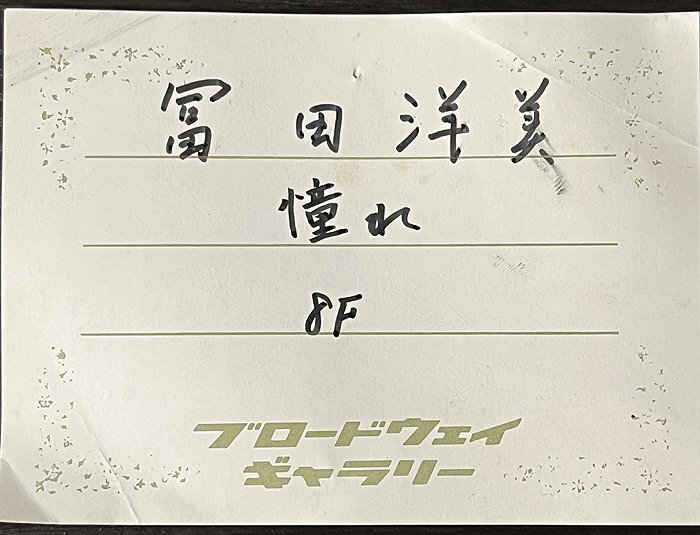 冨田洋美
憧れ
8F
ブロードウェイ
ギャラリー